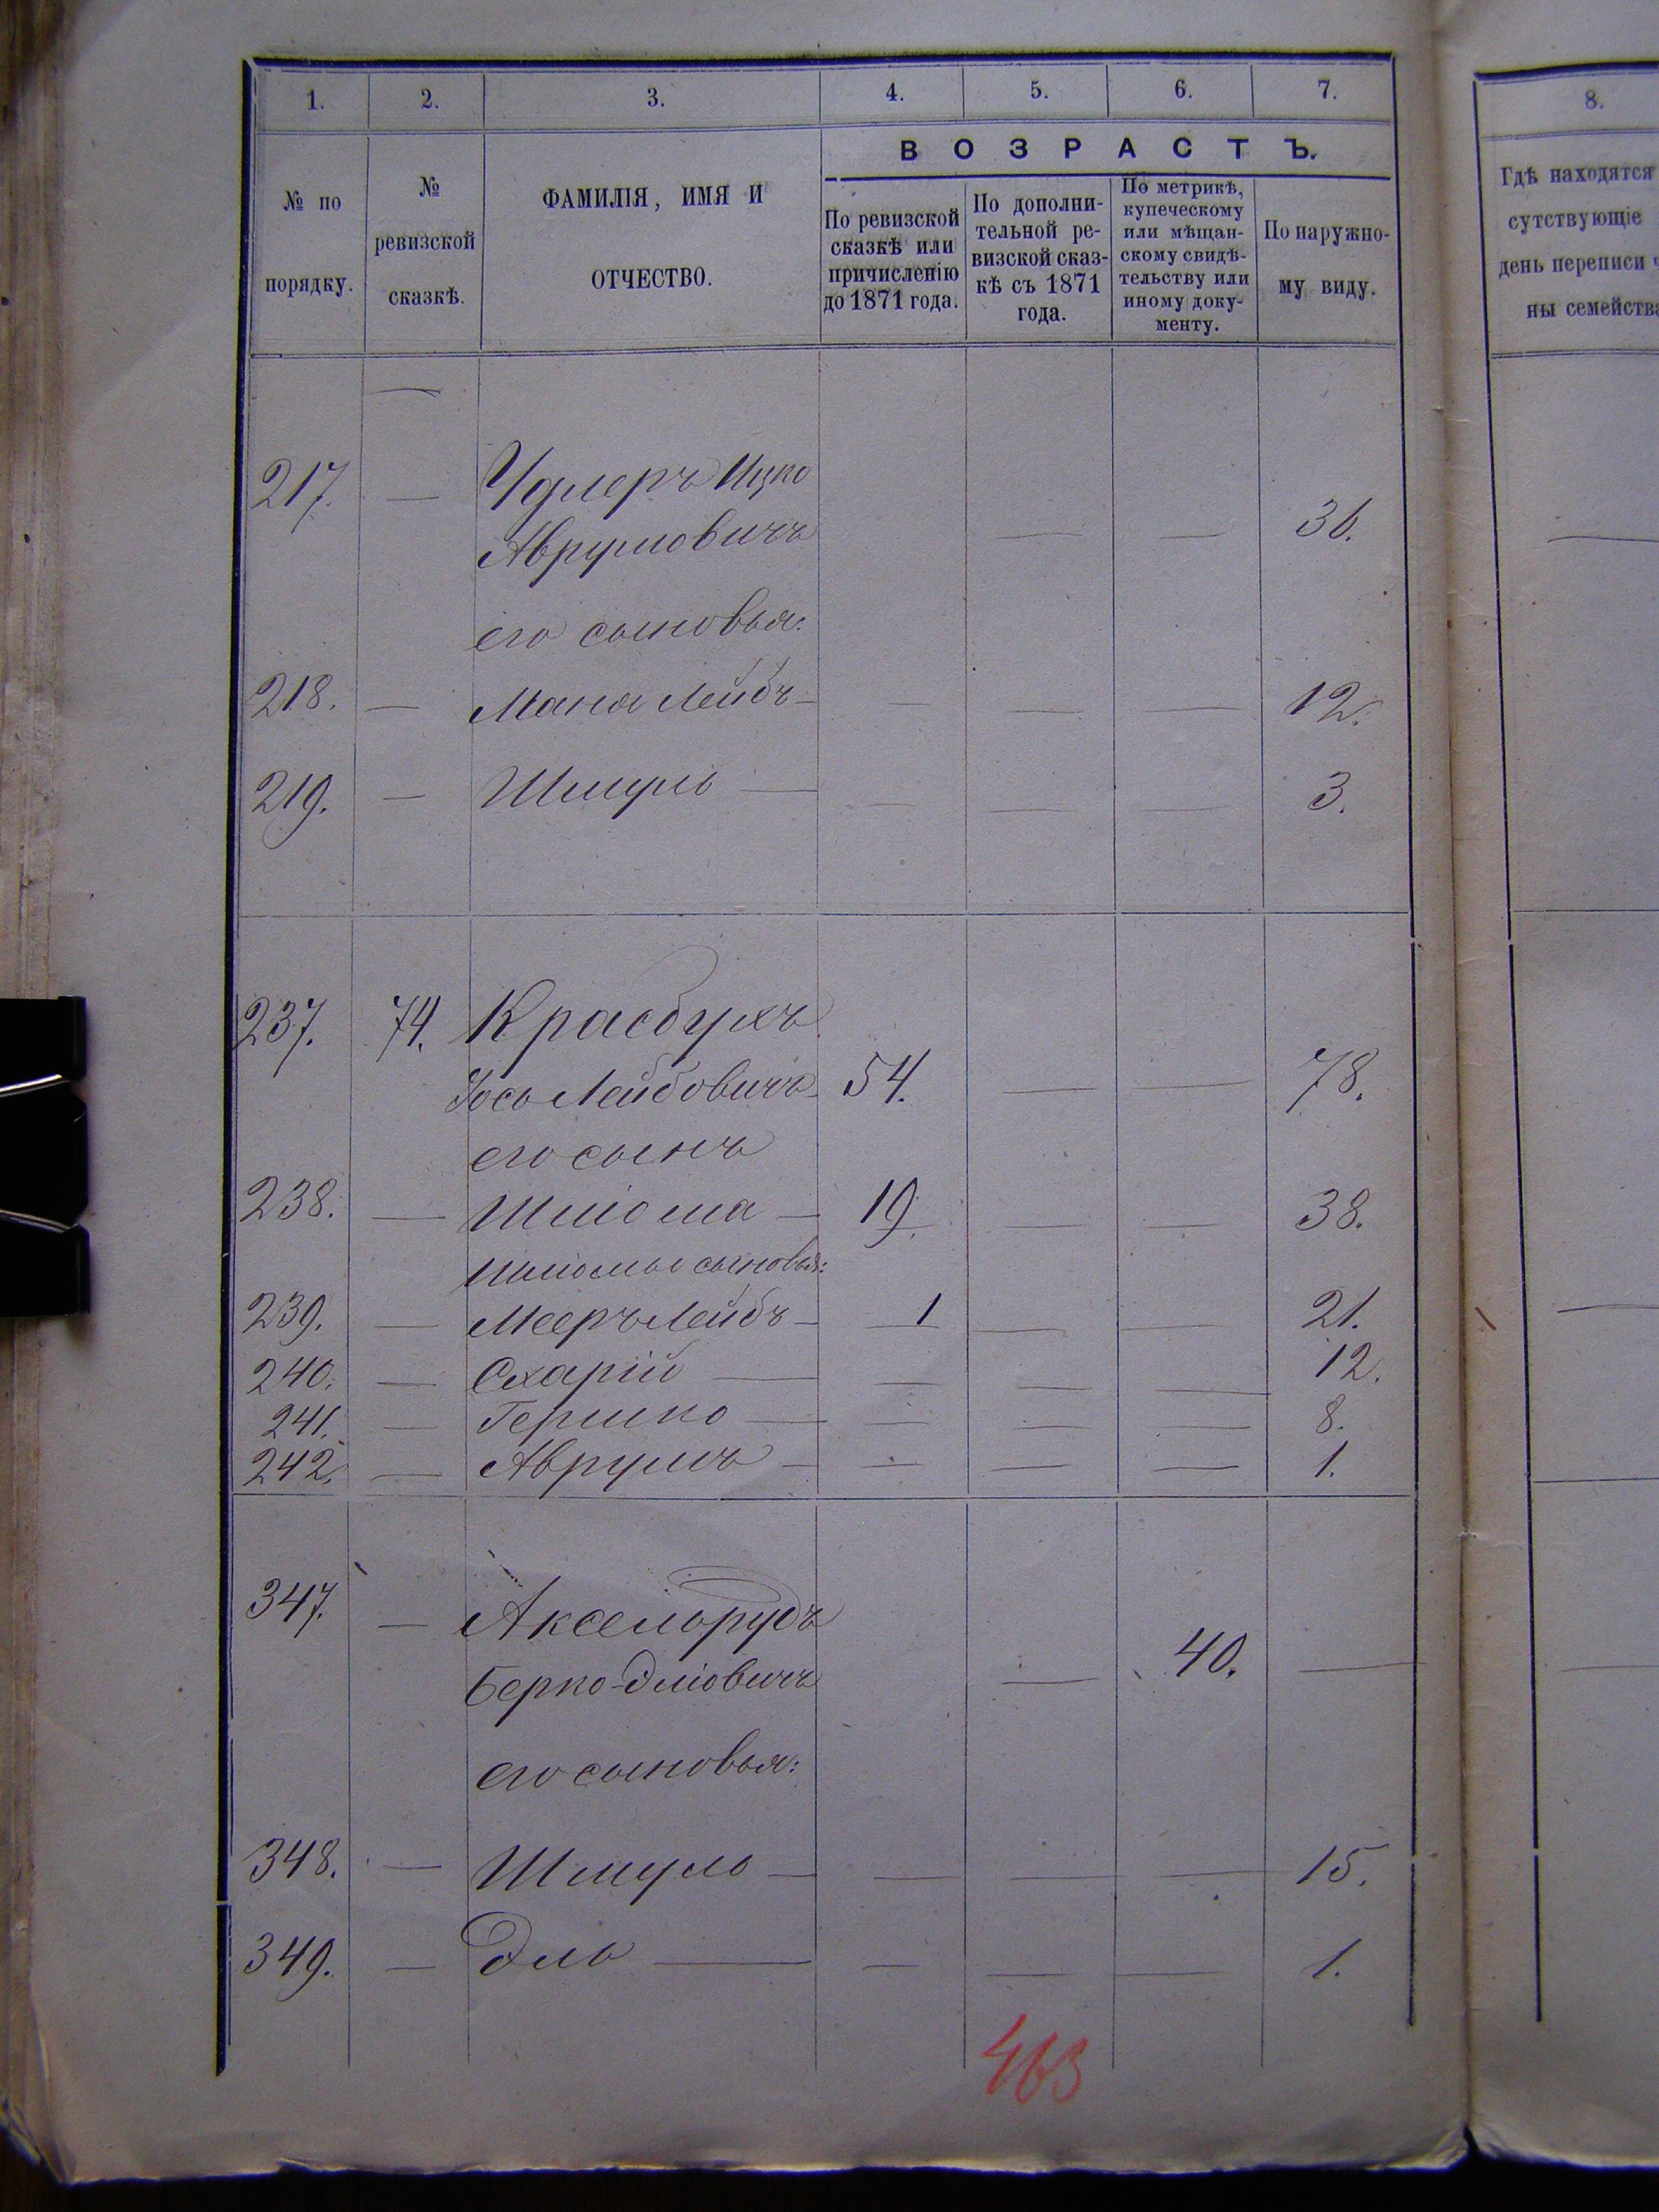 1. 2. 3. 4. 5. 6. 7.
8.
ВОЗРАСТЪ.
№ по порядку.
№ ревизской сказкѣ.
ФАМИЛІЯ, ИМЯ И ОТЧЕСТВО.
По ревизской сказкѣ или причисленію до 1871 года.
По дополни-тельной ре-визской сказ-кѣ съ 1871 года.
По метрикѣ, купеческому или мѣщан-скому свидѣ-тельству или иному доку-менту.
По наружно-му виду.
Гдѣ находятся
сутствующіе
день переписи ч
ны семейства
217. — Удлеръ Ицко
Аврумовичъ — — 36.
его сыновья:
218. — Маня Лейбъ — — — — 12.
219. — Шмуль — — — — 3.
237. 74. Красбухъ
Іось Лейбовичъ 54. — — 78.
его сынъ
238. — Шліома — 19. — — 38.
Шліомы сыновья:
239. — Мееръ Лейбъ — 1 — — 21.
240. — Схарій — — — — 12.
241. — Гершко — — — — 8.
242. — Аврумъ — — — — 1.
347. — Аксельрудъ
Берко-Эліовичъ — 40. —
его сыновья:
348. — Шмуль — — — — 15.
349. — Эль — — — — 1.
463